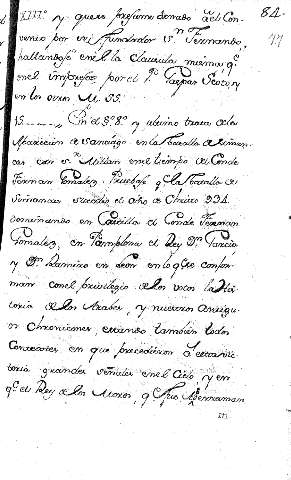 84.
XIIIº. y que se presume donado à el Con-
vento por su fundador Sⁿ. Fernando,
hallandose en el la clausula misma qᵉ
en el impreso por el Pᵉ. Gaspar Scoto, y
en los otros M. SS.
15. En el §. 8º. y ultimo trata de la
Aparicion de Santiago en la batalla de Siman-
cas con Sⁿ. Millan en el tiempo de el Conde
Fernan Gonzalez. Pruebase qᵉ la batalla de
Simancas sucedio el año de Christo 934.
dominando en Castilla el Conde Fernan
Gonzalez, en Pamplona el Rey Dⁿ. Garcia
y Dⁿ. Ramiro en Leon en lo qᵉ se confor-
man con el privilegio de los votos la His-
toria de los Arabes, y nuestros antigu-
os Chronicones, estando tambien todos
Concordes en que precedieron à esta vic-
toria grandes señales en el Cielo, y en
qᵉ el Rey de los Moros, qᵉ fue Abderraman